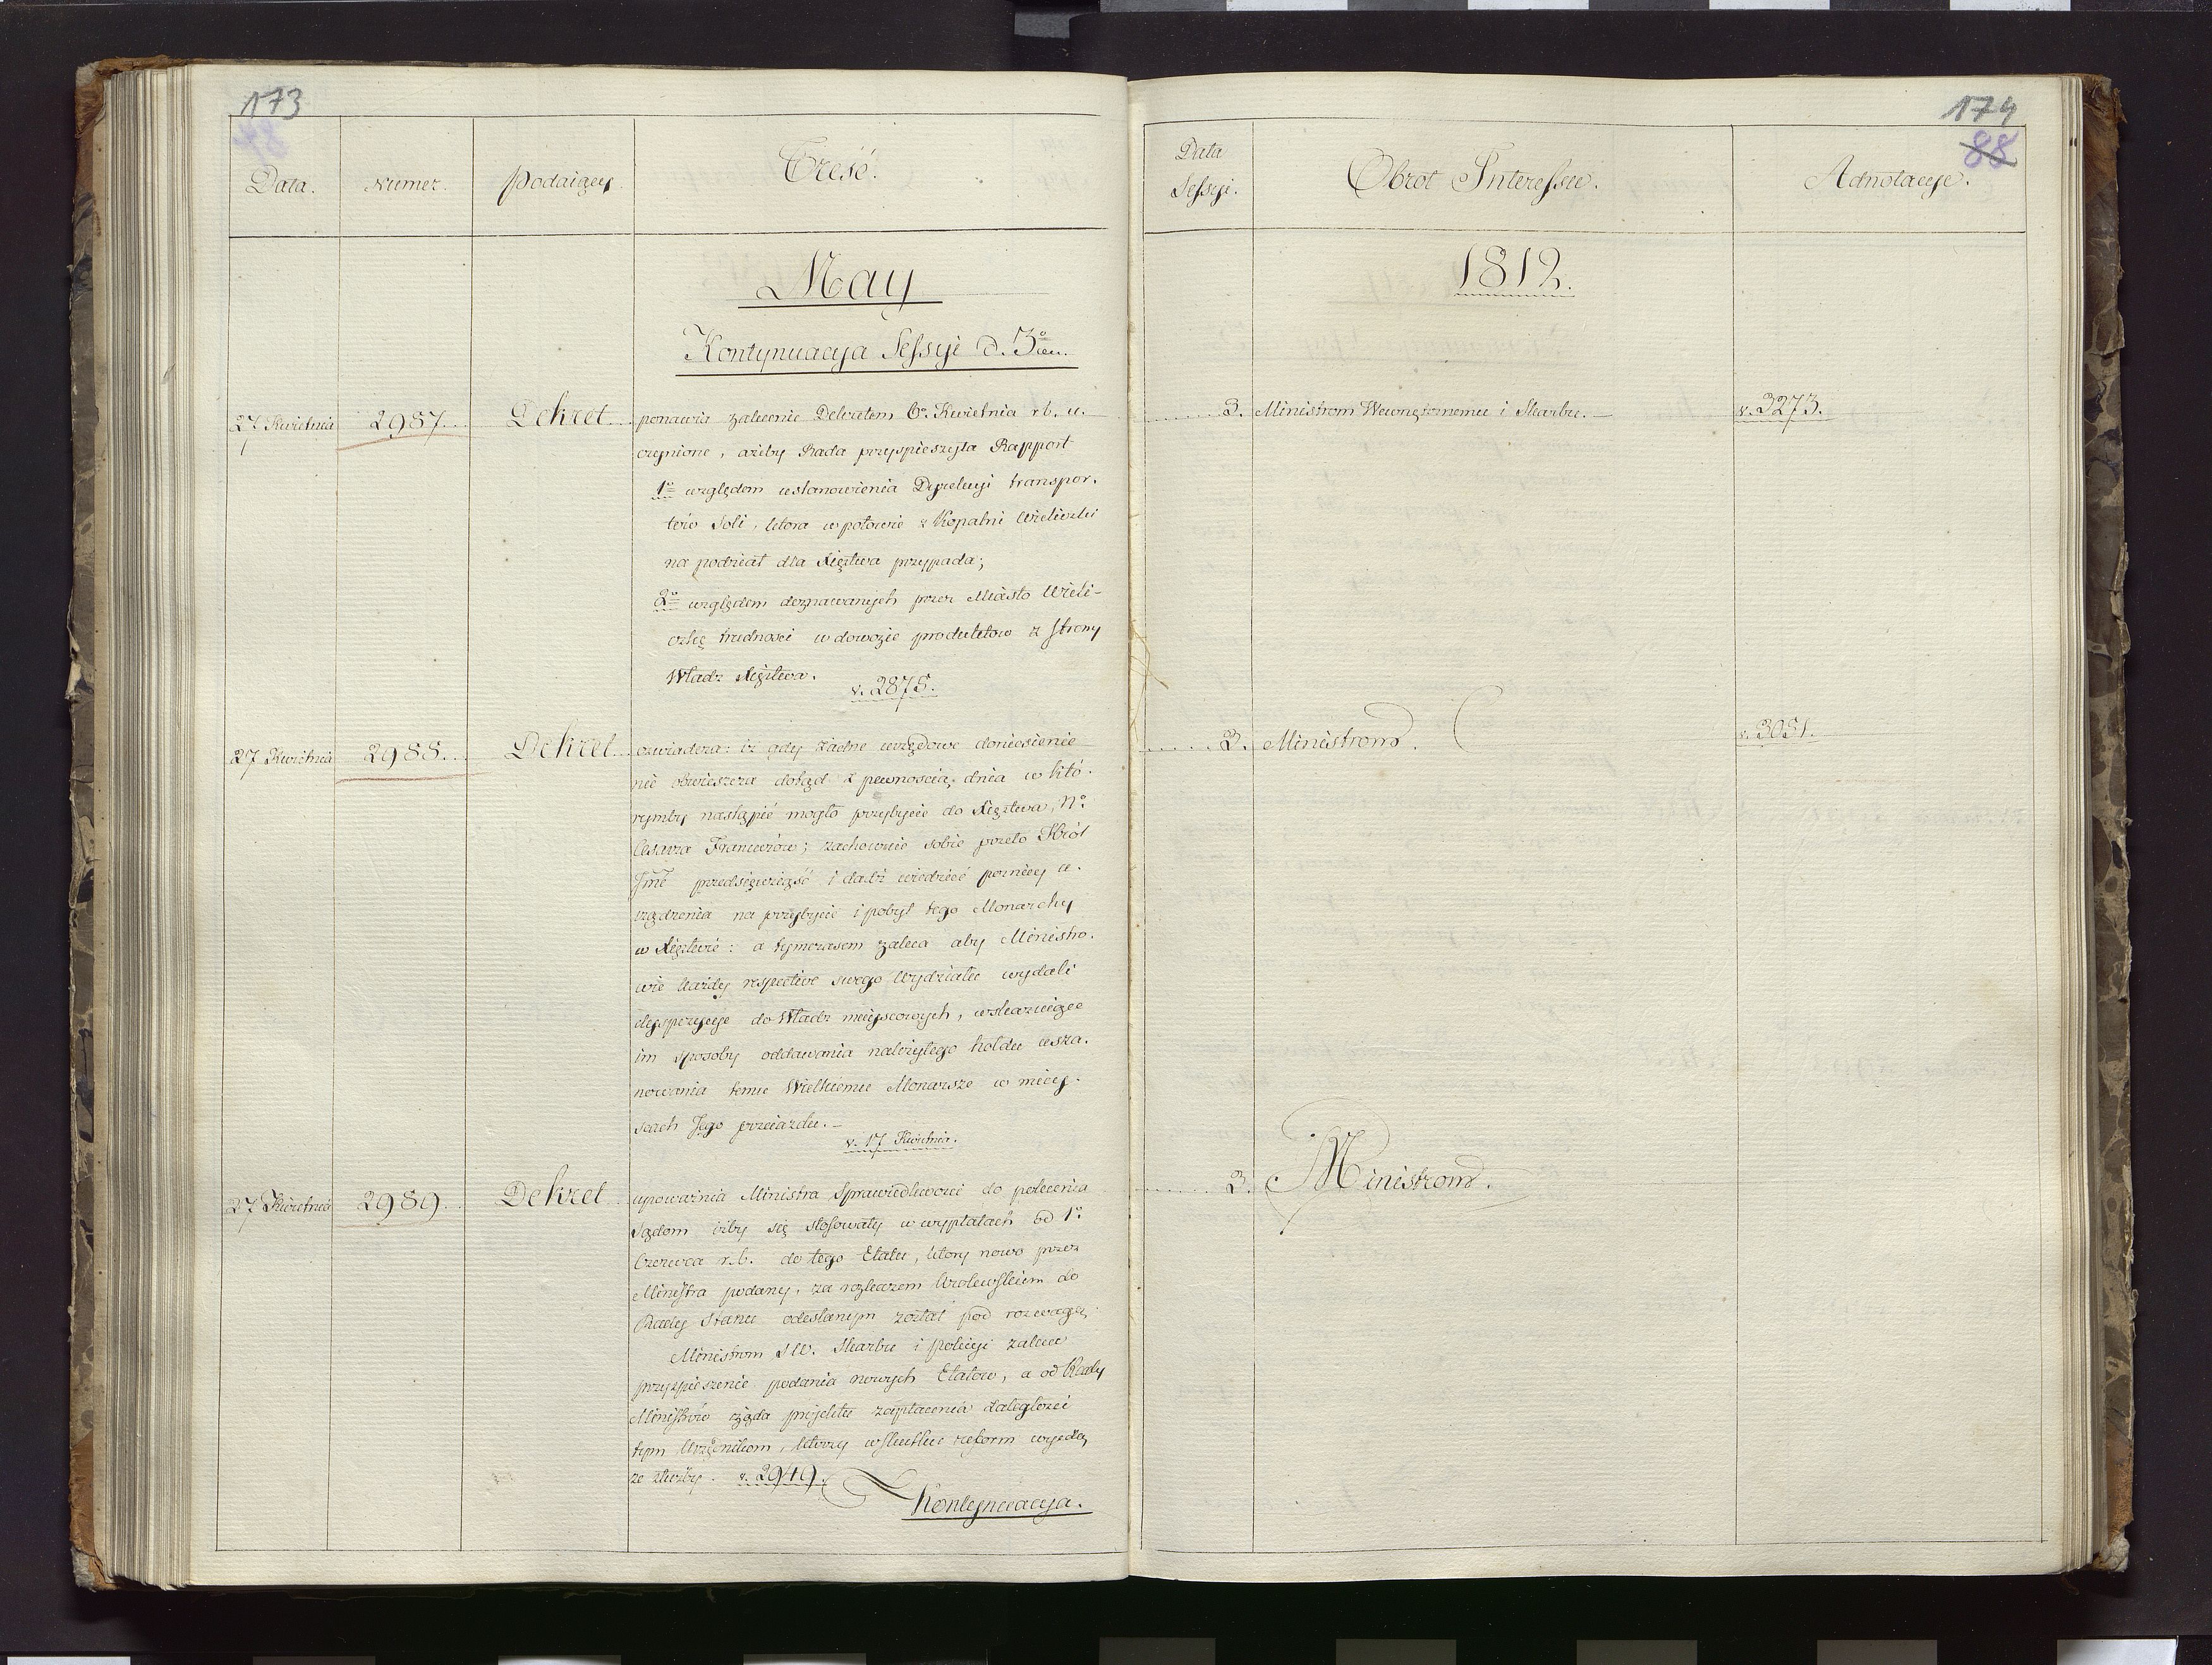 173
Data. Numer. Podaiący. Treść.
May
Kontynuacya Sessyi d. 3°
27 Kwietnia 2987... Dekret... ponawia zalecenie Dekretem 6° Kwietnia r. b. u-
czynione, ażeby Rada przyspieszyła Rapport
1° względem ustanowienia Dyrekcyi transpor-
tów Soli, ktora w połowie z Kopalni Wieliczki
na podział dla Xięztwa przypada;
2° względem doznawanych przez Miasto Wieli-
czkę trudnosci w dowozie produktow z strony
Władz Xięztwa.
v. 2875.
27 Kwietnia 2988... Dekret... oswiadcza: iż gdy żadne urzędowe doniesienie
nie obwieszcza dotąd z pewnoscią dnia w któ-
rymby nastąpić mogło przybycie do Xięztwa, N°
Cesarza Francuzów; zachowuie sobie przeto Król
Jmć przedsięwziąść i dadź wiedzieć poźniey u-
rządzenia na przybycie i pobyt tego Monarchy
w Xięztwie: a tymczasem zaleca aby Ministro-
wie każdy respective swego Wydziału wydali
dyspozycye do Władz mieyscowych, wskazuiące
im sposoby oddawania należytego hołdu usza-
nowania temu Wielkiemu Monarsze w miey-
scach Jego przeiazdu.-
v. 17 Kwietnia.
27 Kwietnia 2989... Dekret... upoważnia Ministra Sprawiedliwosci do polecenia
Sądom iżby się stosowały w wypłatach od 1°
Czerwca r. b. do tego Etatu, ktory nowo przez
Ministra podany, za rozkazem Krolewskiem do
Rady Stanu odesłanym został pod rozwagę;
Ministrom SW. Skarbu i Policyi zaleca
przyspieszenie podania nowych Etatow, a od Rady
Ministrów żąda projektu zapłacenia zaległosci
tym Urzędnikom, ktorzy w skutku reform wyidą
ze służby. v. 2949.
Kontynuacya.
174
88
Data Sessyi. Obrot Interessu. Adnotacye.
1812.
3. Ministrom Wewnętrznemu i Skarbu.- v. 3273.
3. Ministrom. v. 3031.
3. Ministrom.